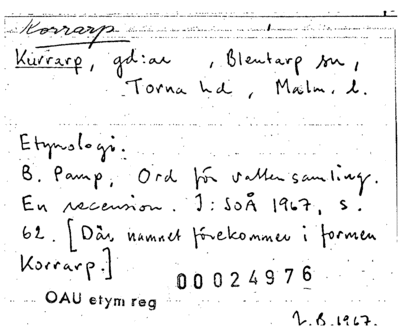 Korrarp
Kurrarp, gd:ar, Blentarp sn,
Torna hd, Malm. l.
Etymologi:
B. Pamp, Ord för vattensamling.
En recension. I: SOÅ 1967, s.
62. [Där namnet förekommer i formen
Korrarp.]
00024976
OAU etym reg
B. 1967.